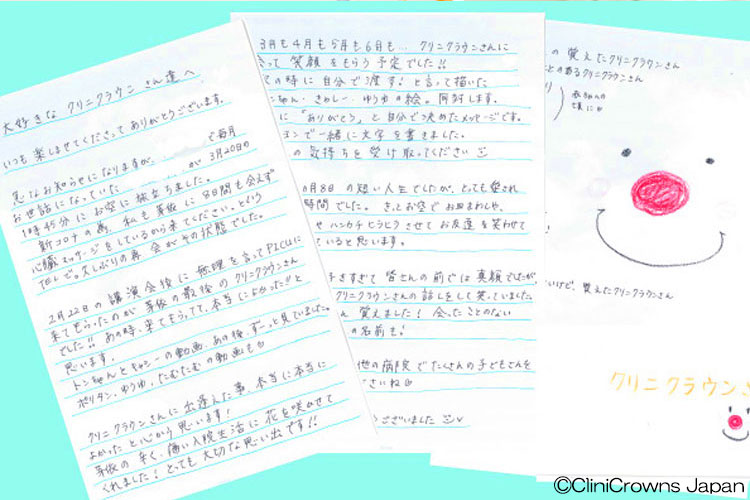 大好きな クリニクラウン さん達へ
いつも楽しませてくださって ありがとうございます。
急なお知らせになりますが、 で毎月
お世話になっていた が 3月20日の
時45分にお空に旅立ちました。
新コロナの為、私も芽依に8日間も会えず
心臓マッサージをしているから来てください。という
TELで久しぶりの再会がその状態でした。
2月22日の講演会後に無理を言ってPICUに
来てもらったのが芽依の最後のクリニクラウンさん
でした!!あの時、来てもらって、本当に良かったと
思います。
トンちゃんとキャシーの動画、あの後、ずーっと見ていました。
ポリタン・ゆうゆ・たむたむの動画も
クリニクラウンさんに出逢えた事、本当に本当に
よかったと心から思います!
芽依の辛く、痛い入院生活に花を咲かせて
くれました!とっても大切な思い出です!!
3月も4月も5月も6月も… クリニクラウンさんに
会って 笑顔をもらう予定でした!!
の時に自分で渡す!と言って描いた
ゆうゆの絵。同封します。
に「ありがとう」と自分で決めたメッセージです。
ンで一緒に文字を書きました。
の気持ちを受け取ってください
月8日 の短い人生でしたが、とっても愛され
時間でした。きっとお空でお皿まわしや、
ハンカチヒラヒラさせてお友達を笑わせて
ていると思います。
きすぎて 皆さんの前では真顔でしたが
クリニクラウンの話しをして笑っていました。
ん覚えました!会ったことのない
の名前も!
他の病院でたくさんの子どもさんを
さいね
うございました
の 覚えたクリニクラウンさん
とのあるクリニクラウンさん
けど、覚えたクリニクラウンさん
クリニクラウンさん
©CliniClowns Japan